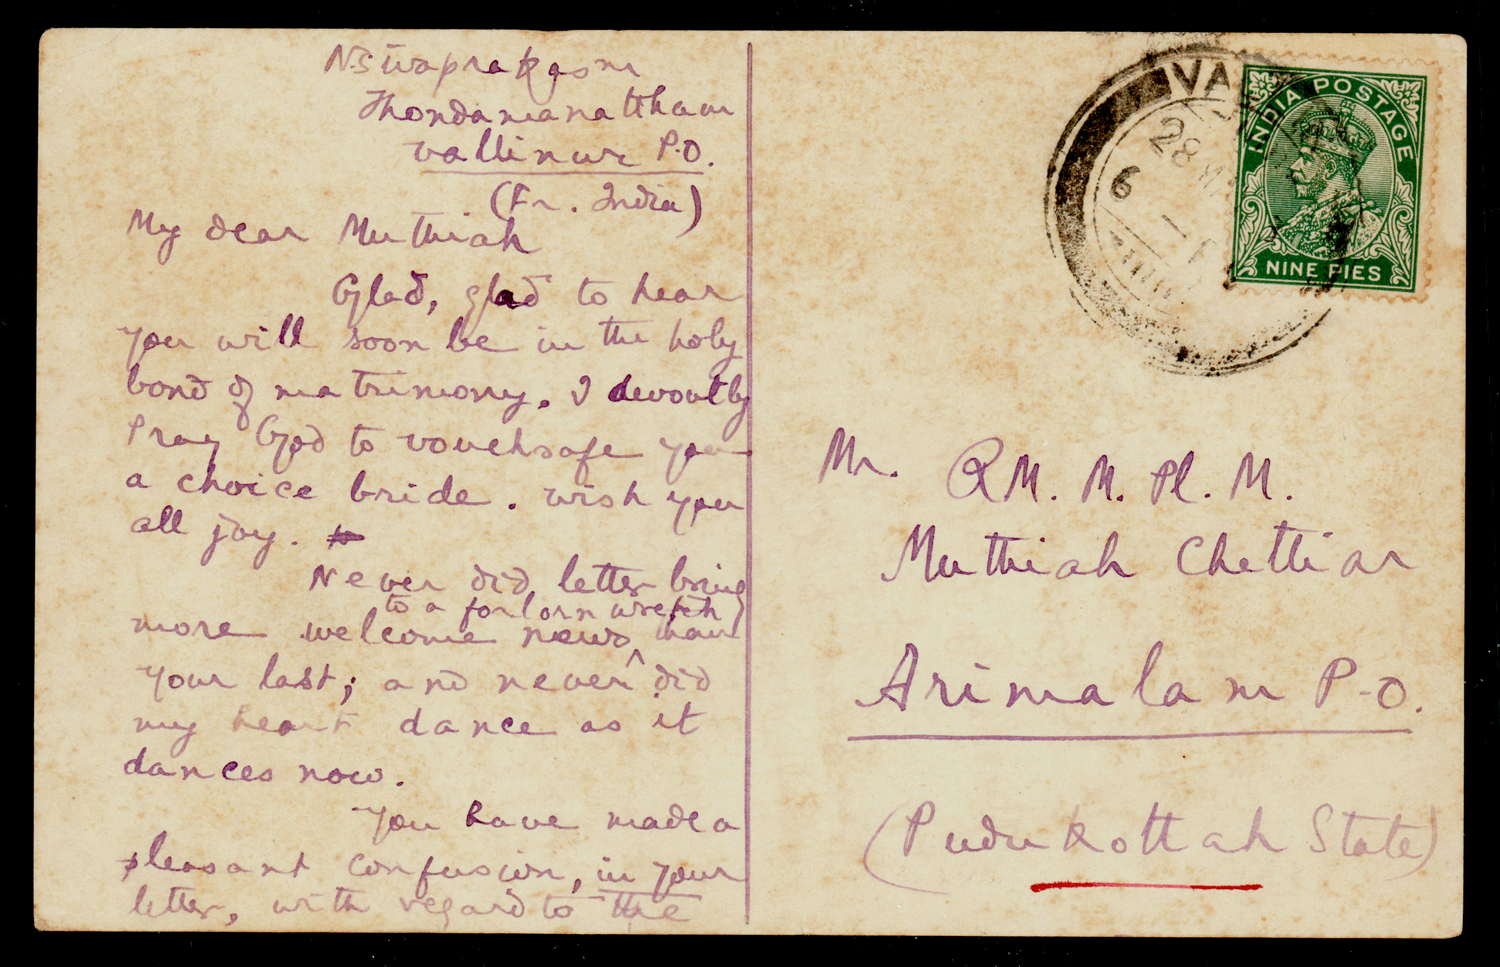 N.Sivaprakasm
Thondamanattham
Vallinur P.O.
(Fr. India)
My dear Muthiah
Glad, glad to hear
you will soon be in the holy
bond of matrimony. I devoutly
Pray God to vouchsafe you
a choice bride. wish you
all joy.
Never did letter bring
to a forlorn wretch
more welcome news than
your last; and never did
my heart dance as it
dances now.
You have made a
pleasant confusion, in your
letter, with regard to the
VA
28
6
INDIA POSTAGE
NINE PIES
Mr. RM. M. Pl. M.
Muthiah Chettiar
Arimalam P.O.
(Pudukottah State)